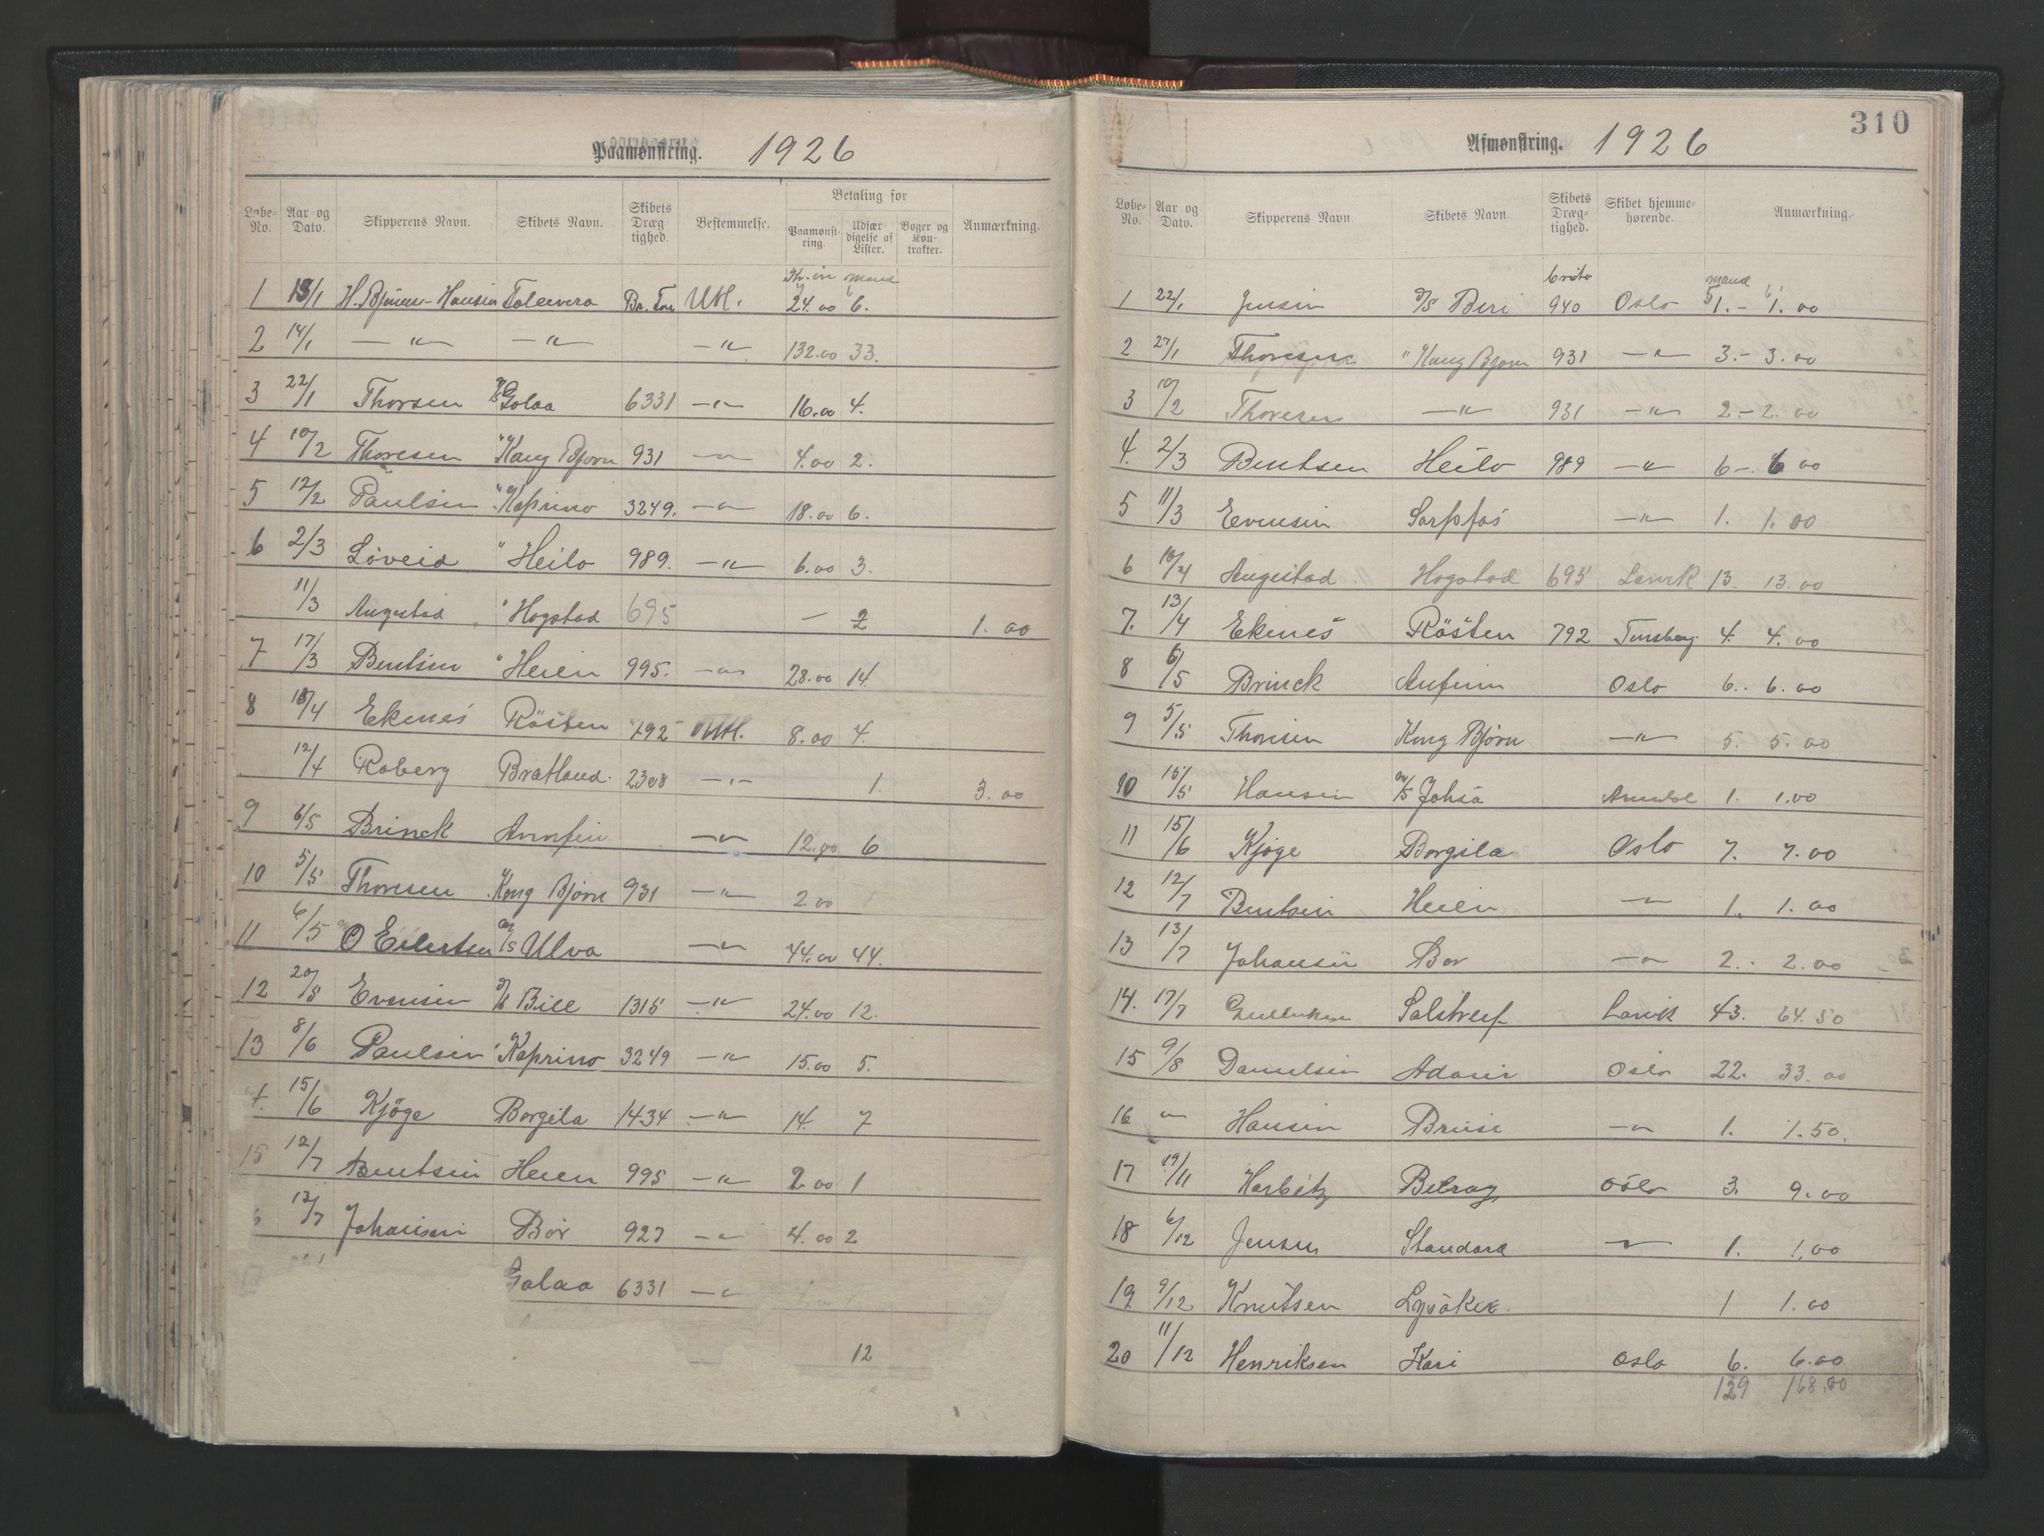 Paamonstring. 1926
Løbe-No. Aar og Dato. Skipperens Navn. Skibets Navn. Skibets Dræg-tighed. Bestemmelse. Betaling for Paamonst-ring. Udfær-digelse af Lister. Bøger og Kon-trakter. Anmærkning.
Kr. øre mand
1 13/1 Hansen Br. Utl. 24.00 6.
2 14/1 —"— —"— —"— 132.00 33.
3 22/1 Thorsen D/S Golaa 6331 —"— 16.00 4.
4 10/2 Thoresen " Kong Bjørn 931 —"— 4.00 2.
5 12/2 Paulsen " Kaprino 3249. —"— 18.00 6.
6 2/3 Løveid " Heilo 989. —"— 6.00 3.
11/3 Augestad " Hogstad 695 — 2 1.00
7 17/3 Bentsen " Heien 995. —"— 28.00 14.
8 10/4 Ekenes Røsten 792 Utl. 8.00 4.
12/4 Roberg Bratland 2308 —"— 1. 3.00
9 6/5 Brinck Arnfin —"— 12.00 6
10 5/5 Thoresen Kong Bjørn 931 —"— 2.00
11 6/5 O Eilertsen M/S Ulva —"— 44.00 44.
12 20/5 Evensen D/S Bill 1315 —"— 24.00 12.
13 8/6 Paulsen " Kaprino 3249 —"— 15.00 5.
4. 15/6 Kjøge Borgila 1434 —"— 14. 7
15 12/7 Bentsen Heien 995 —"— 2.00 1
6 13/7 Johansen Bør 927 —"— 4.00 2
Golaa 6331 —"—
12
310
Afmonstring. 1926
Løbe-No. Aar og Dato. Skipperens Navn. Skibets Navn Skibets Dræg-tighed. Skibet hjemme-hørende. Anmærkning.
brutto mand
1 22/1 Jensen D/S Beri 940 Oslo 1.— 1.00
2 27/1 Thoresen " Kong Bjørn 931 —"— 3.— 3.00
3 10/2 Thoresen —"— 931 —"— 2.— 2.00
4. 2/3 Bentsen Heilo 989 —"— 6—. 6 00
5 11/3 Evensen Sarpfos —"— 1. 1.00
6 10/4 Augestad Hogstad 695 Larvik 13. 13.00
7. 13/4 Ekenes Røsten 792 Tønsberg 4. 4.00
8 6/5 Brinck Anfinn Oslo 6.. 6.00
9 5/5 Thoresen Kong Bjørn —"— 5. 5.00
10 15/5 Hansen M/S Johsa Arendal 1. 1.00
11 15/6 Kjøge Borgila Oslo 7. 7.00
12 12/7 Bentsen Heien —"— 1. 1.00
13 13/7 Johansen Bør —"— 2.- 2.00
14. 17/7 Gulliksen Solstreif Larvik 43. 64.50
15 9/8 Danielsen Adansi Oslo 22. 33.00
16 —"— Hansen Bruse —"— 1. 1.50.
17 19/11 Harbitz Belray Oslo 3. 9.00
18 6/12 Jensen Standard —"— 1. 1.00
19 9/12 Knutsen Lysaker. 1 1.00
20 11/12 Henriksen Kari Oslo 6. 6.00
129 168.00